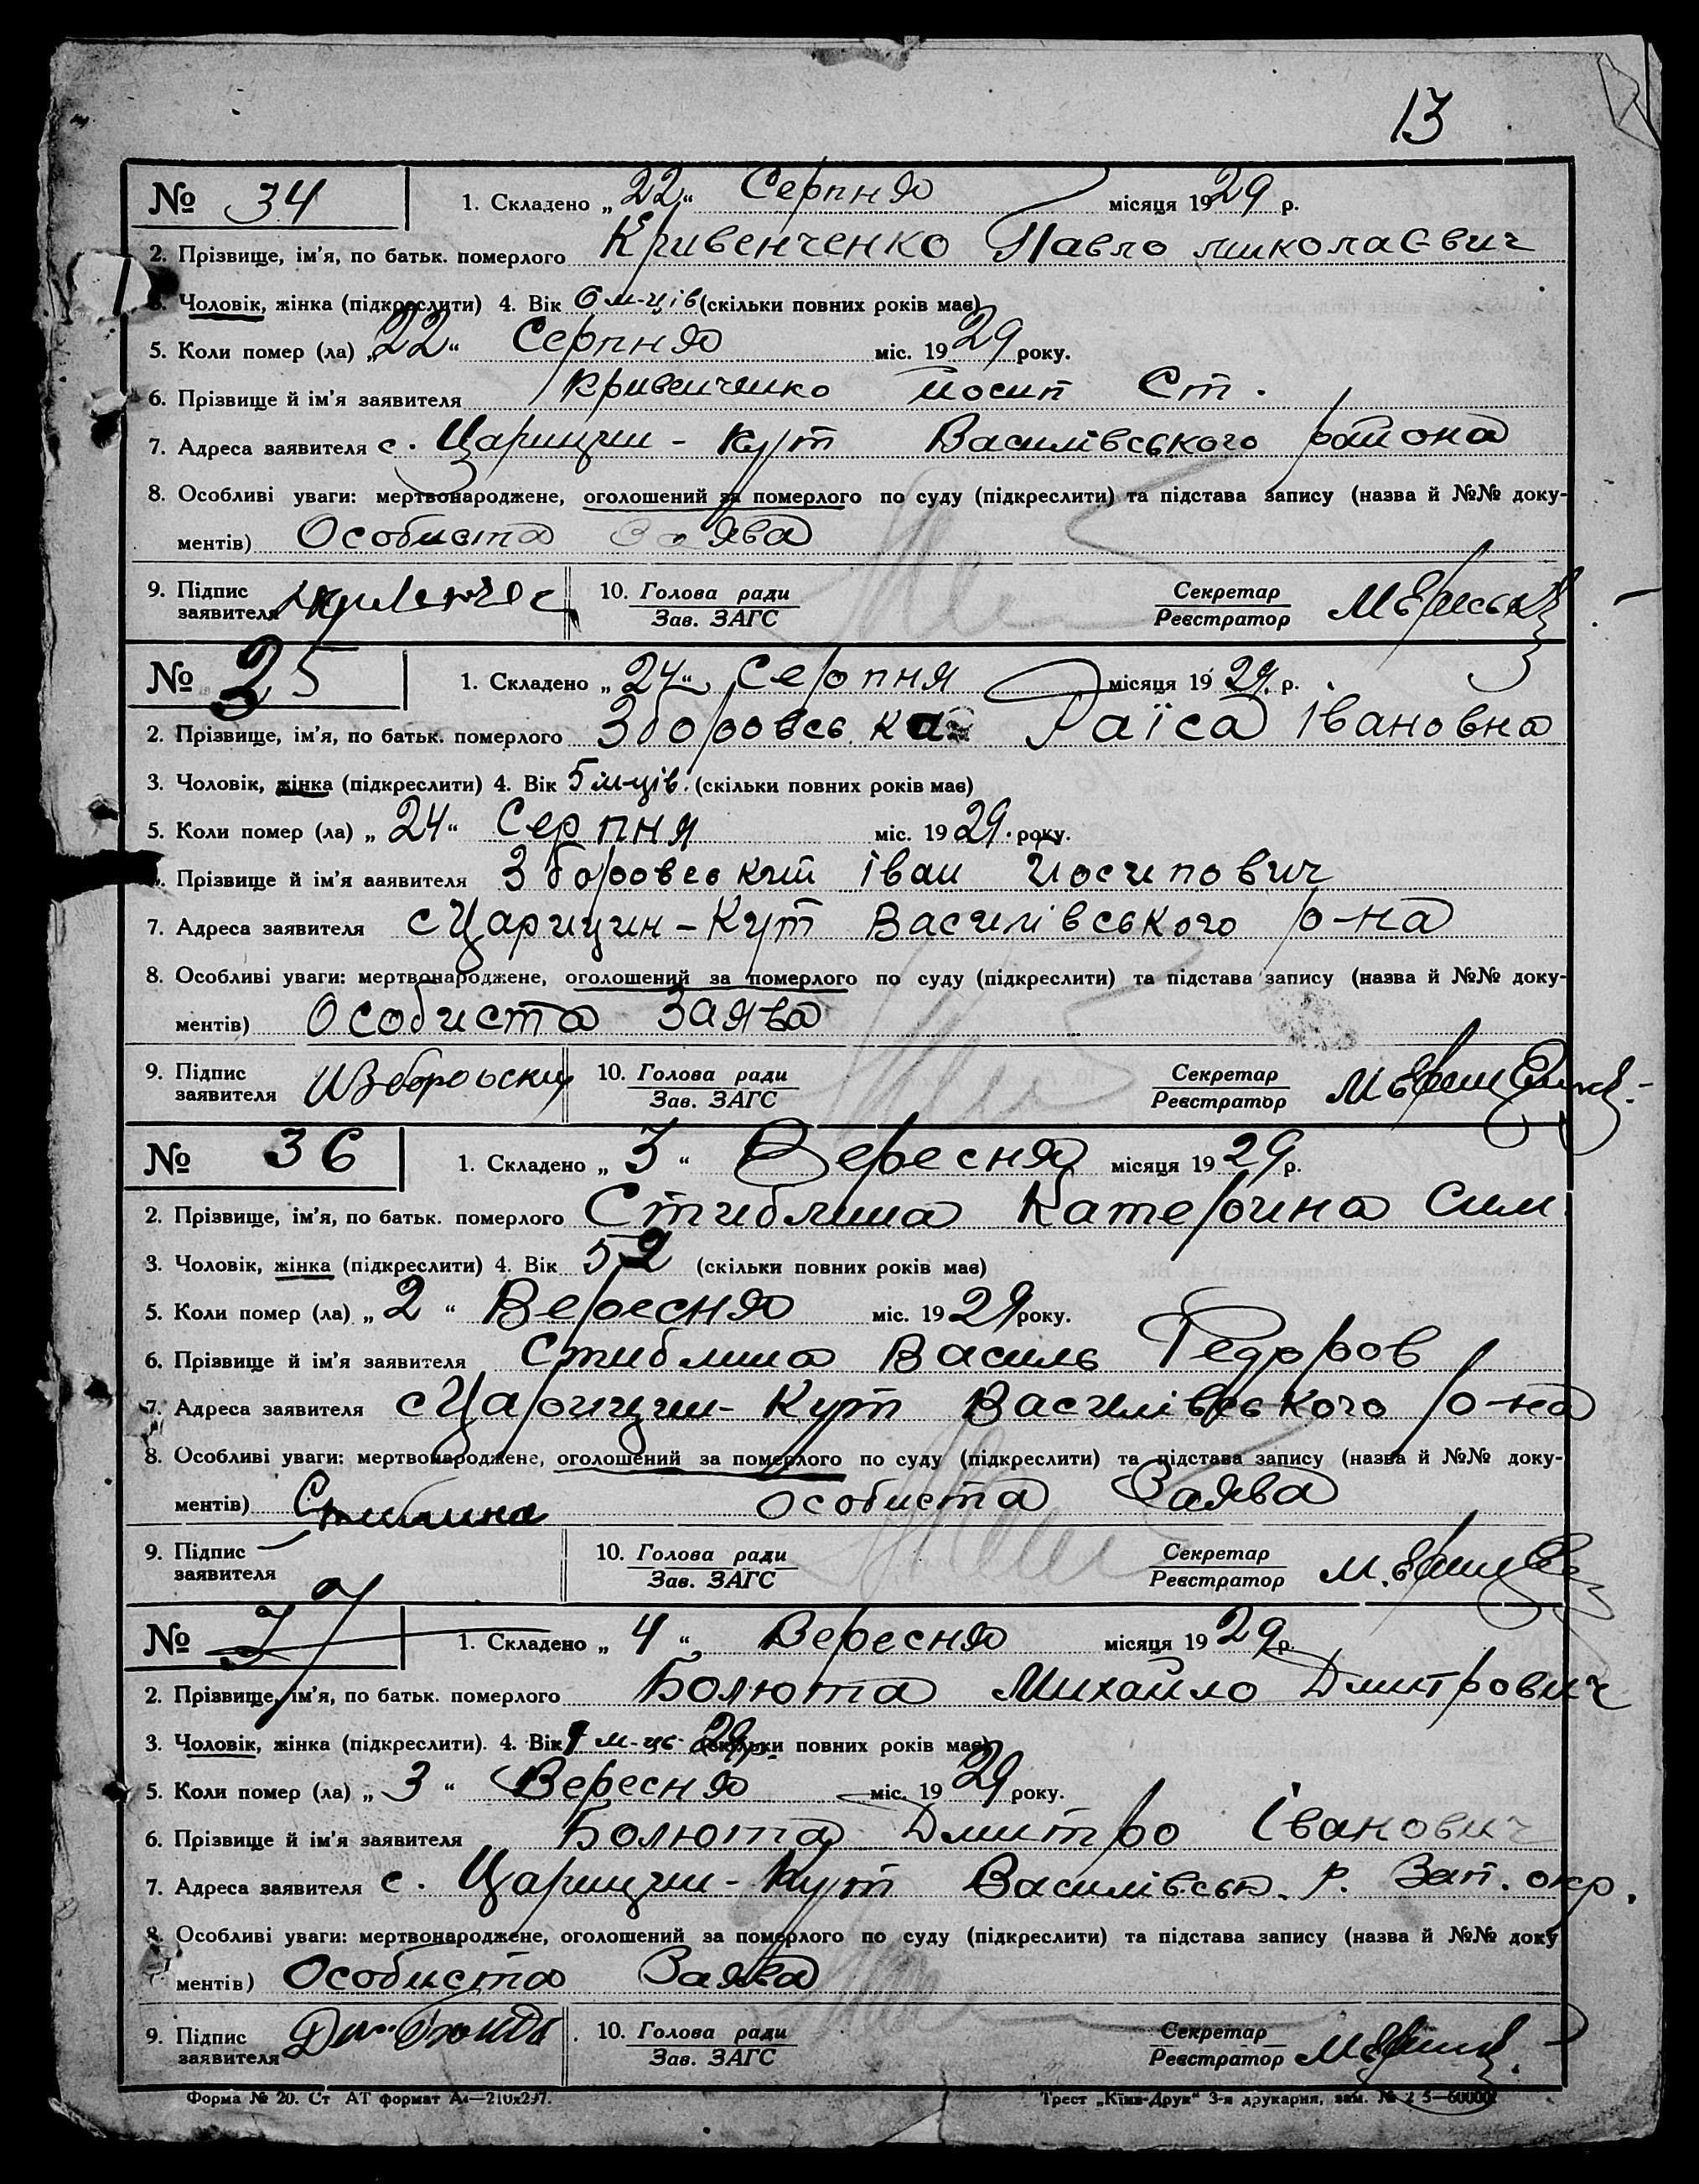 13
№ 34 1. Складено „22“ Серпня місяця 1929 р.
2. Прізвище, ім’я, по батьк. померлого Кривенченко Павло Миколаєвич
3. Чоловік, жінка (підкреслити) 4. Вік 6 м-ців (скільки повних років має)
5. Коли помер (ла) „22“ Серпня міс. 1929 року.
6. Прізвище й ім’я заявителя Кривенченко Йосип Ст.
7. Адреса заявителя с. Царицин-Кут Василівського района
8. Особливі уваги: мертвонароджене, оголошений за померлого по суду (підкреслити) та підстава запису (назва й №№ доку-
ментів) Особиста Заява
9. Підпис 10. Голова ради Секретар
заявителя Зав. ЗАГС Реєстратор
№ 35 1. Складено „24“ Серпня місяця 1929. р.
2. Прізвище, ім’я, по батьк. померлого Зборовська Раїса Івановна
3. Чоловік, жінка (підкреслити) 4. Вік 5 м-ців. (скільки повних років має)
5. Коли помер (ла) „24“ Серпня міс. 1929. року.
6. Прізвище й ім’я заявителя Зборовський Іван Йосипович
7. Адреса заявителя с Царицин-Кут Василівського р-на
8. Особливі уваги: мертвонароджене, оголошений за померлого по суду (підкреслити) та підстава запису (назва й №№ доку-
ментів) Особиста Заява
9. Підпис 10. Голова ради Секретар
заявителя Зав. ЗАГС Реєстратор
№ 36 1. Складено „3“ Вересня місяця 1929 р.
2. Прізвище, ім’я, по батьк. померлого Катерина Сим.
3. Чоловік, жінка (підкреслити) 4. Вік 52 (скільки повних років має)
5. Коли помер (ла) „2“ Вересня міс. 1929 року.
6. Прізвище й ім’я заявителя Василь Федоров
7. Адреса заявителя с Царицин-Кут Василівського р-на
8. Особливі уваги: мертвонароджене, оголошений за померлого по суду (підкреслити) та підстава запису (назва й №№ доку-
ментів) Особиста Заява
9. Підпис 10. Голова ради Секретар
заявителя Зав. ЗАГС Реєстратор
№ 37 1. Складено „4“ Вересня місяця 1929 р.
2. Прізвище, ім’я, по батьк. померлого Болюта Михайло Дмитрович
3. Чоловік, жінка (підкреслити). 4. Вік м-ць (скільки повних років має)
5. Коли помер (ла) „3“ Вересня міс. 1929 року.
6. Прізвище й ім’я заявителя Болюта Дмитро Іванович
7. Адреса заявителя с. Царицин-Кут Василівськ. р. Зап. окр.
8. Особливі уваги: мертвонароджене, оголошений за померлого по суду (підкреслити) та підстава запису (назва й №№ доку
ментів) Особиста Заява
9. Підпис 10. Голова ради Секретар
заявителя Зав. ЗАГС Реєстратор
Форма № 20. Ст АТ формат А4—210х297. Трест „Київ-Друк“ 3-я друкарня, зам. №